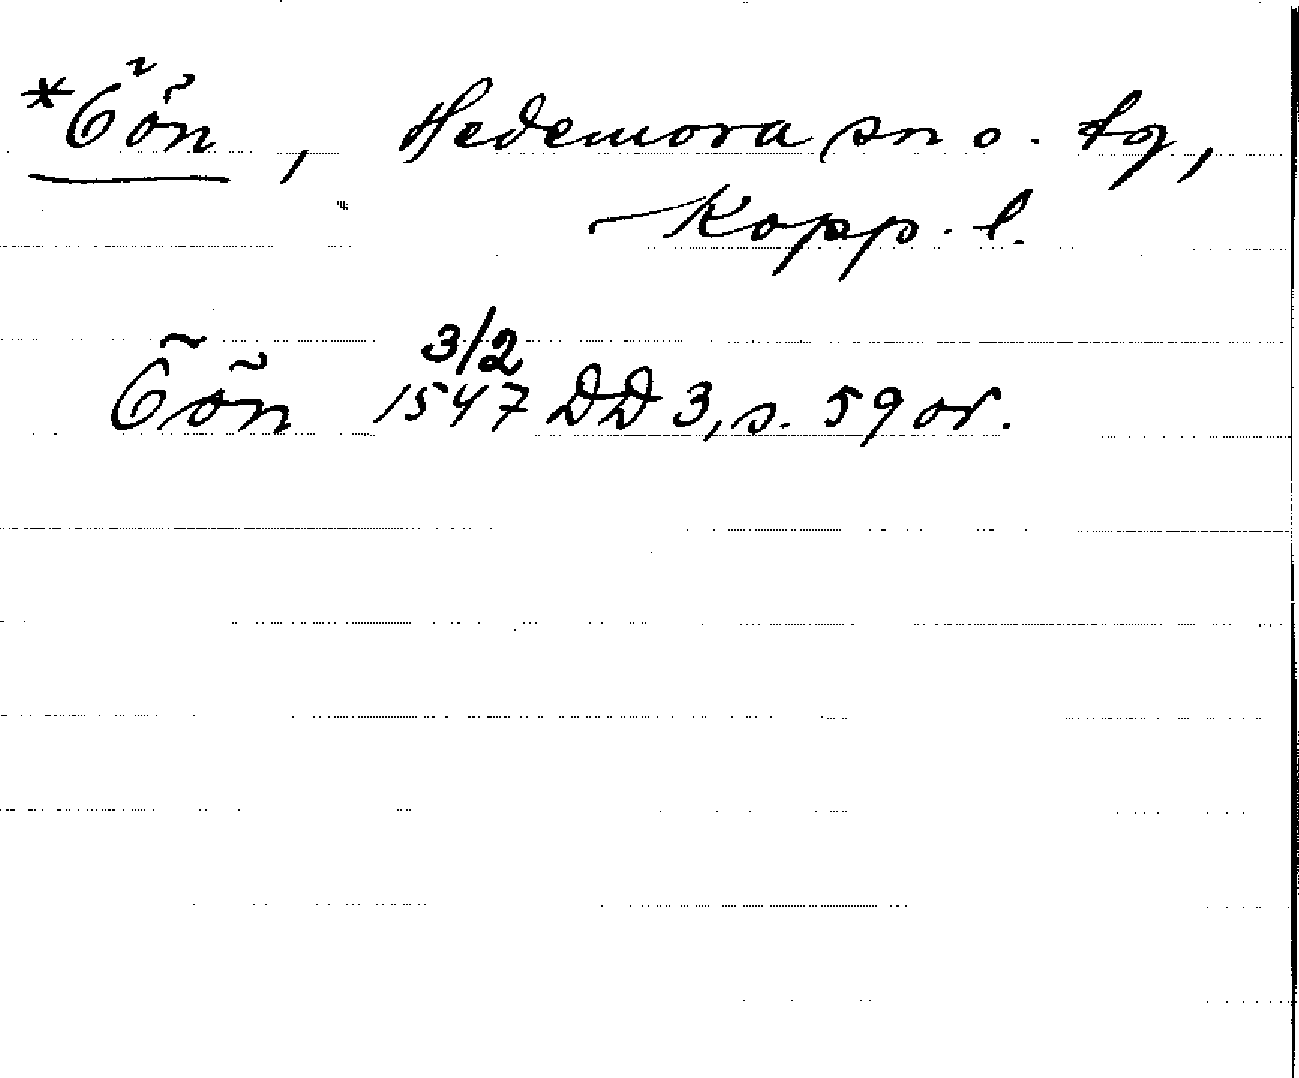 *Öön, Hedemora sn o. tg,
Kopp. l.
Öön 3/2 1547 DD 3, s. 59 or.